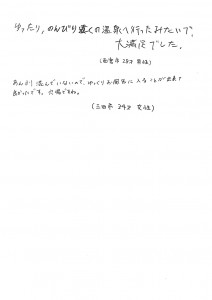 ゆったり、のんびり遠くの温泉へ行ったみたいで、
大満足でした。
(西宮市 28才 男性)
あんまり混んでいないので、ゆっくりお風呂に入ることが出来て
良かったです。穴場ですね。
(三田市 24才 女性)